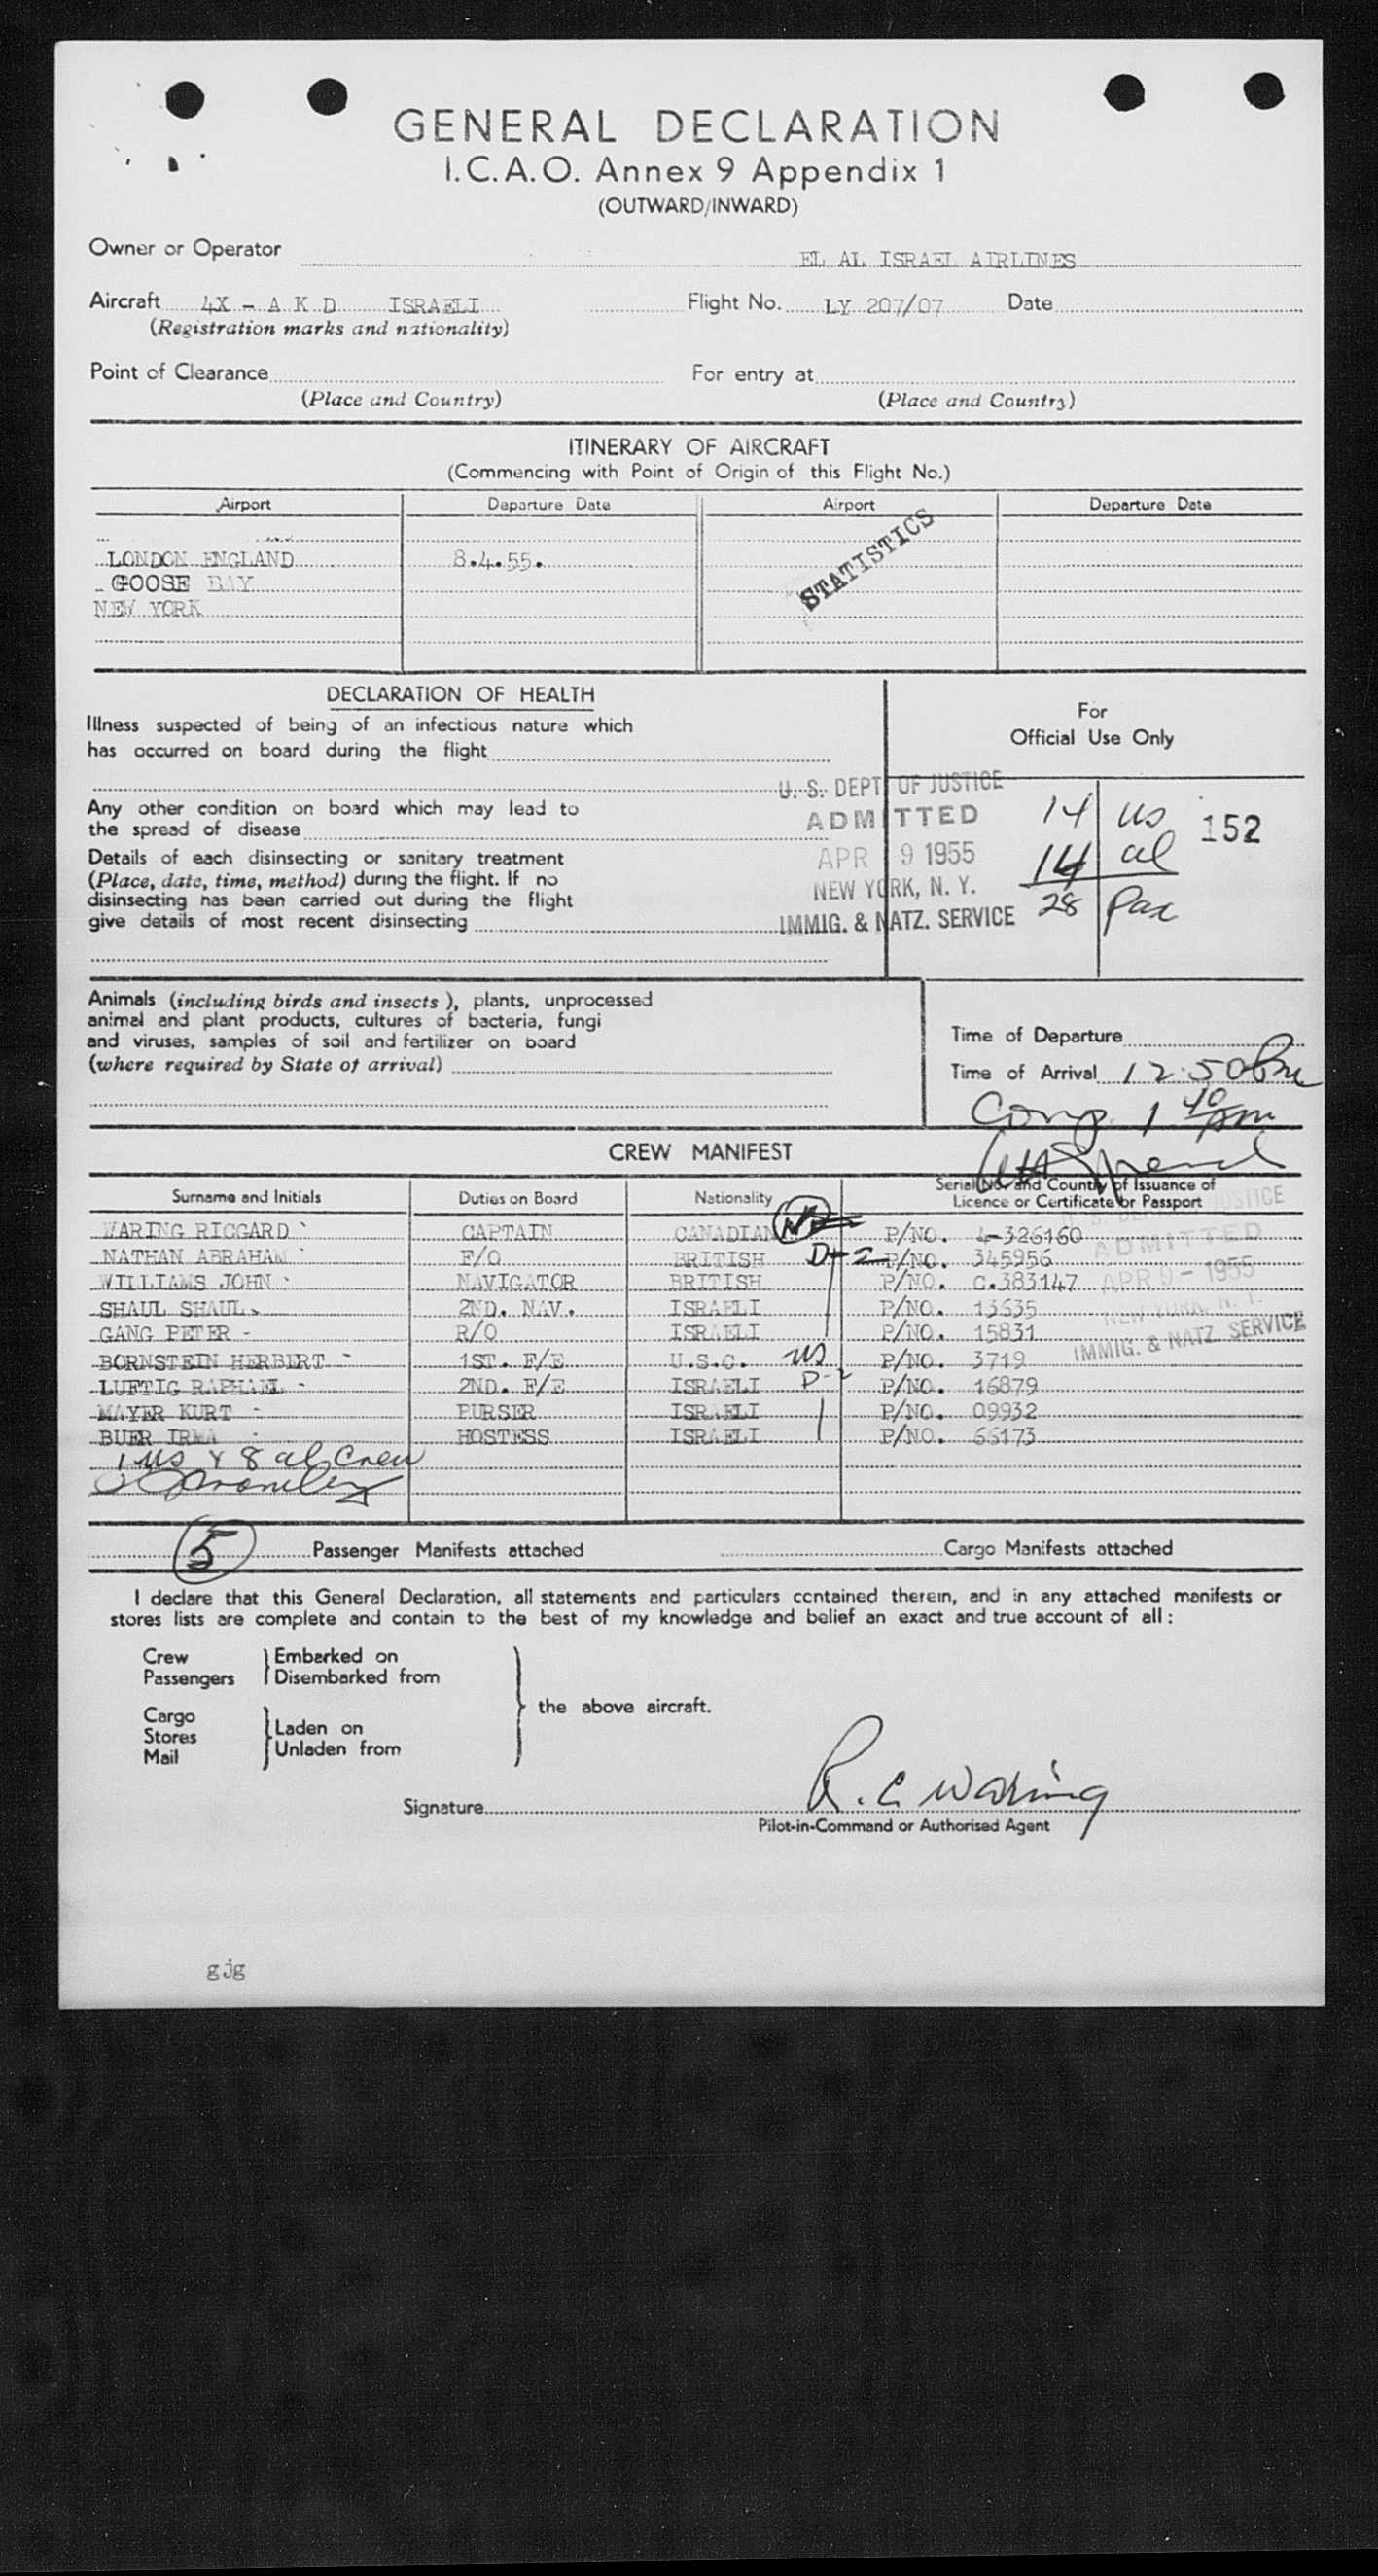 GENERAL DECLARATION
I.C.A.O. Annex 9 Appendix 1
(OUTWARD/INWARD)
Owner or Operator EL AL ISRAEL AIRLINES
Aircraft 4X - A K D ISRAELI Flight No. LY 207/07 Date
(Registration marks and nationality)
Point of Clearance For entry at
(Place and Country) (Place and Country)
ITINERARY OF AIRCRAFT
(Commencing with Point of Origin of this Flight No.)
Airport Departure Date Airport Departure Date
STATISTICS
LONDON ENGLAND 8.4.55.
GOOSE BAY
NEW YORK
DECLARATION OF HEALTH
Illness suspected of being of an infectious nature which
has occurred on board during the flight
For
Official Use Only
Any other condition on board which may lead to
the spread of disease
Details of each disinsecting or sanitary treatment
(Place, date, time, method) during the flight. If no
disinsecting has been carried out during the flight
give details of most recent disinsecting
U. S. DEPT OF JUSTICE
ADMITTED
APR 9 1955
NEW YORK, N. Y.
IMMIG. & NATZ. SERVICE
14 us
14 al
28 Pax
152
Animals (including birds and insects), plants, unprocessed
animal and plant products, cultures of bacteria, fungi
and viruses, samples of soil and fertilizer on board
(where required by State of arrival)
Time of Departure
Time of Arrival 12:50 pm
Comp. 1 40 pm
CREW MANIFEST
Surname and Initials Duties on Board Nationality Serial No. and Country of Issuance of
Licence or Certificate or Passport
WARING RICGARD CAPTAIN CANADIAN P/NO. 4-326160
NATHAN ABRAHAM F/O BRITISH D-2 P/NO. 345956
WILLIAMS JOHN NAVIGATOR BRITISH P/NO. C.383147
SHAUL SHAUL 2ND. NAV. ISRAELI P/NO. 13635
GANG PETER R/O ISRAELI P/NO. 15831
BORNSTEIN HERBERT 1ST. F/E U.S.C. us P/NO. 3719
LUFTIG RAPHAEL 2ND. F/E ISRAELI D-2 P/NO. 16879
MAYER KURT PURSER ISRAELI P/NO. 09932
BUER IRMA HOSTESS ISRAELI P/NO. 66173
1 us & 8 al Crew
JUSTICE
ADMITTED
APR 9 - 1955
NEW YORK, N. Y.
IMMIG. & NATZ. SERVICE
5 Passenger Manifests attached Cargo Manifests attached
I declare that this General Declaration, all statements and particulars contained therein, and in any attached manifests or
stores lists are complete and contain to the best of my knowledge and belief an exact and true account of all :
Crew Embarked on
Passengers Disembarked from
the above aircraft.
Cargo
Stores Laden on
Mail Unladen from
Signature R. C Waring
Pilot-in-Command or Authorised Agent
gjg